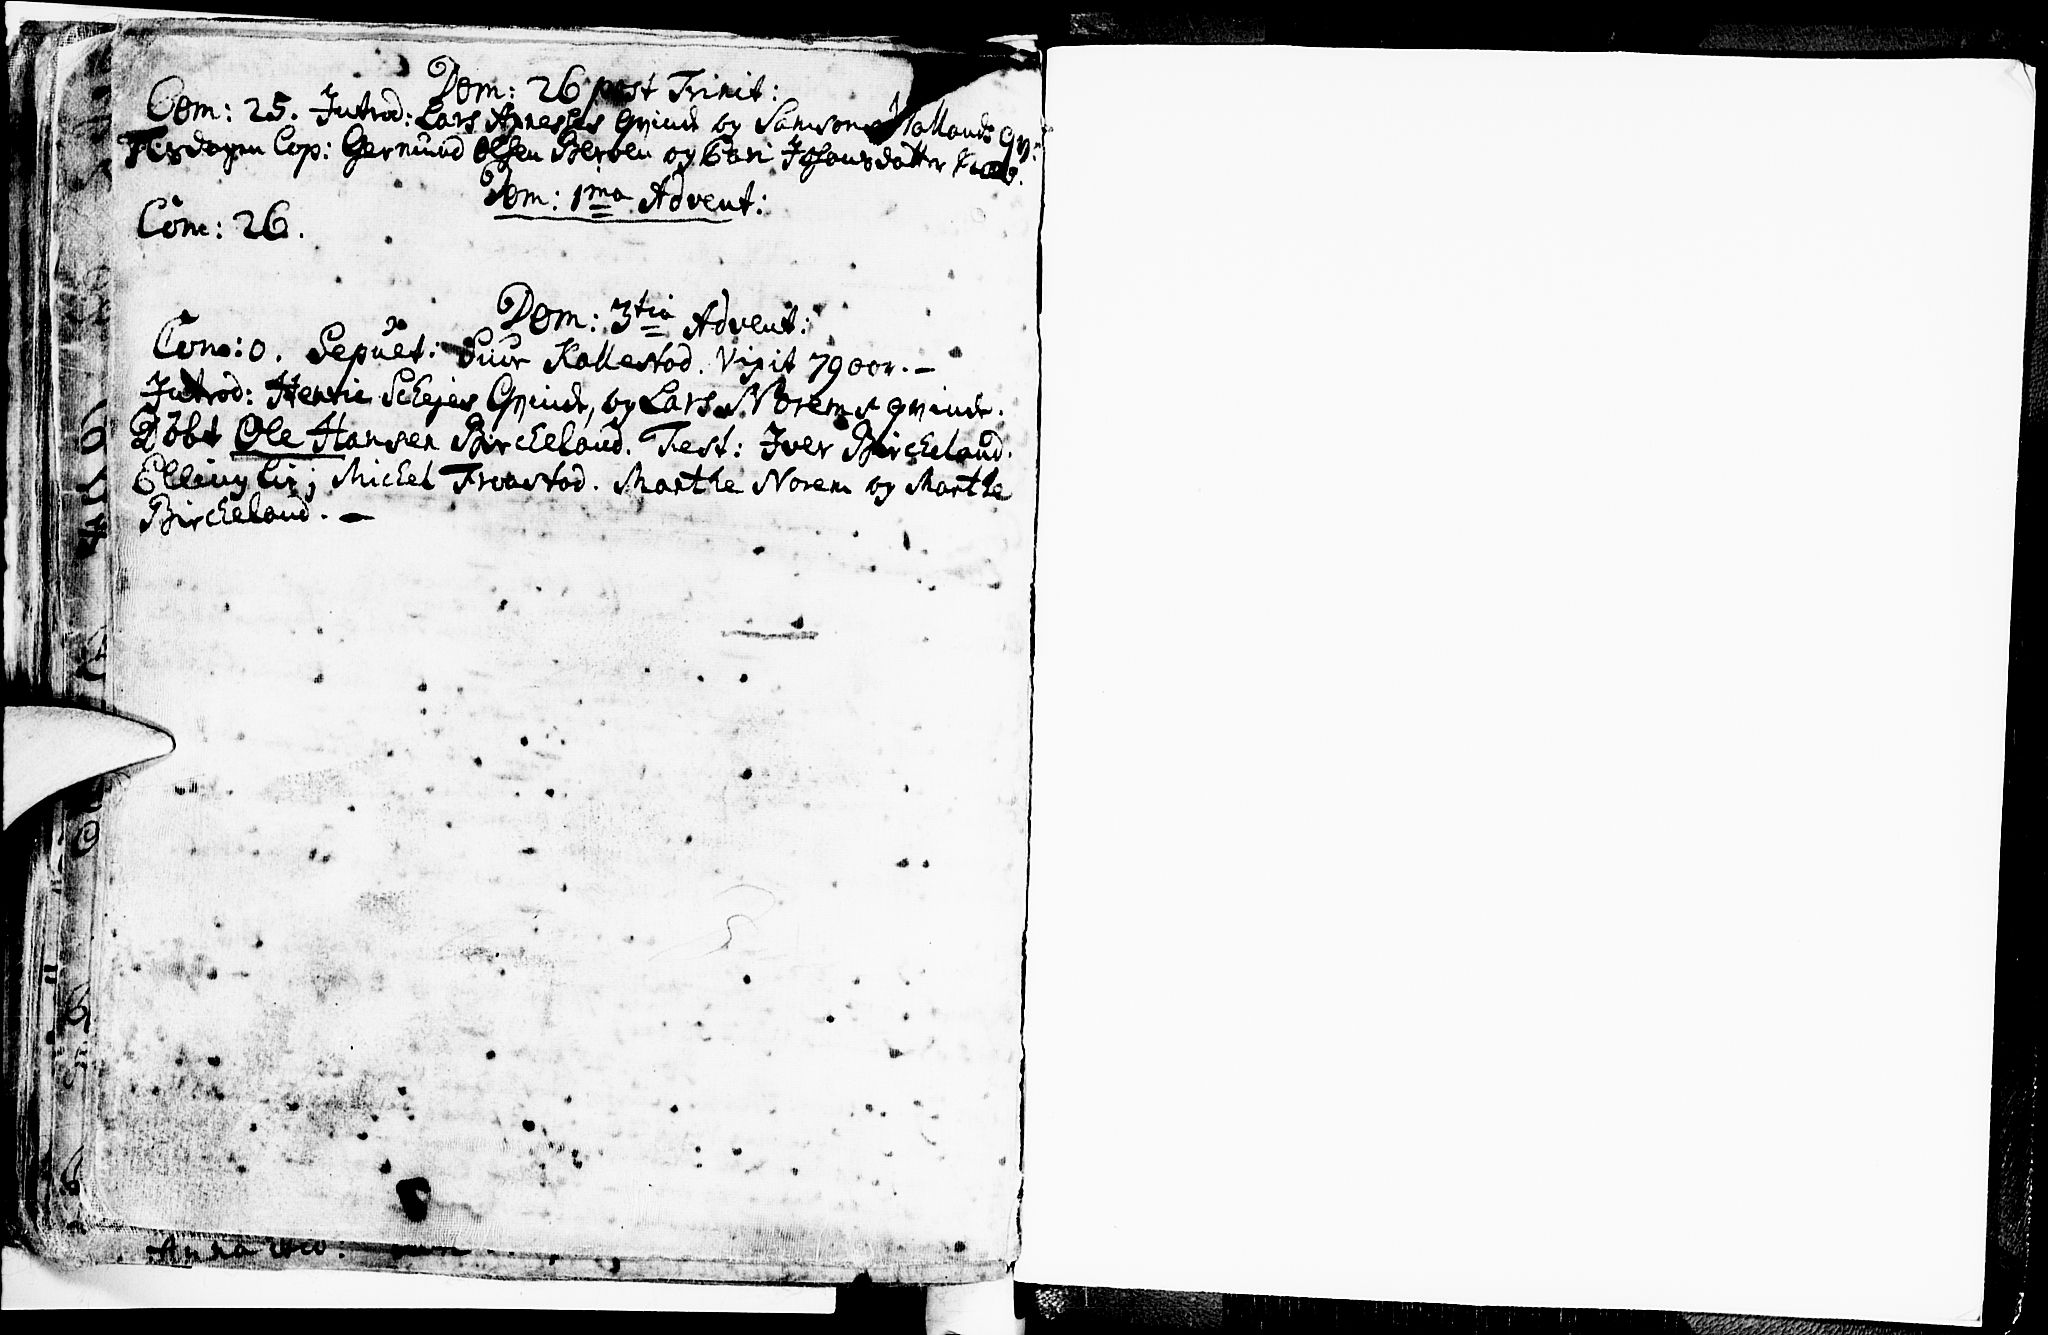 Dom: 26 post Trinit:
Com: 25. Introd: Lars Arnesses Qvinde og Samson Hallands Qv:
Tirsdagen Cop: Germund Olsen og Cari Johansdatter
Dom: 1ma Advent:
Com: 26.
Dom: 3tia Advent:
Com: 0. Sepult: Siur Kallestad. Vixit 79 aar. –
Introd: Henric Schejes Qvinde, og Lars Norems Qvinde.
Döbt Ole Hansen Birckeland. Test: Iver Birckeland.
Elling Lie; Michel Troastad. Marthe Norem og Marthe
Birckeland. –
Anna